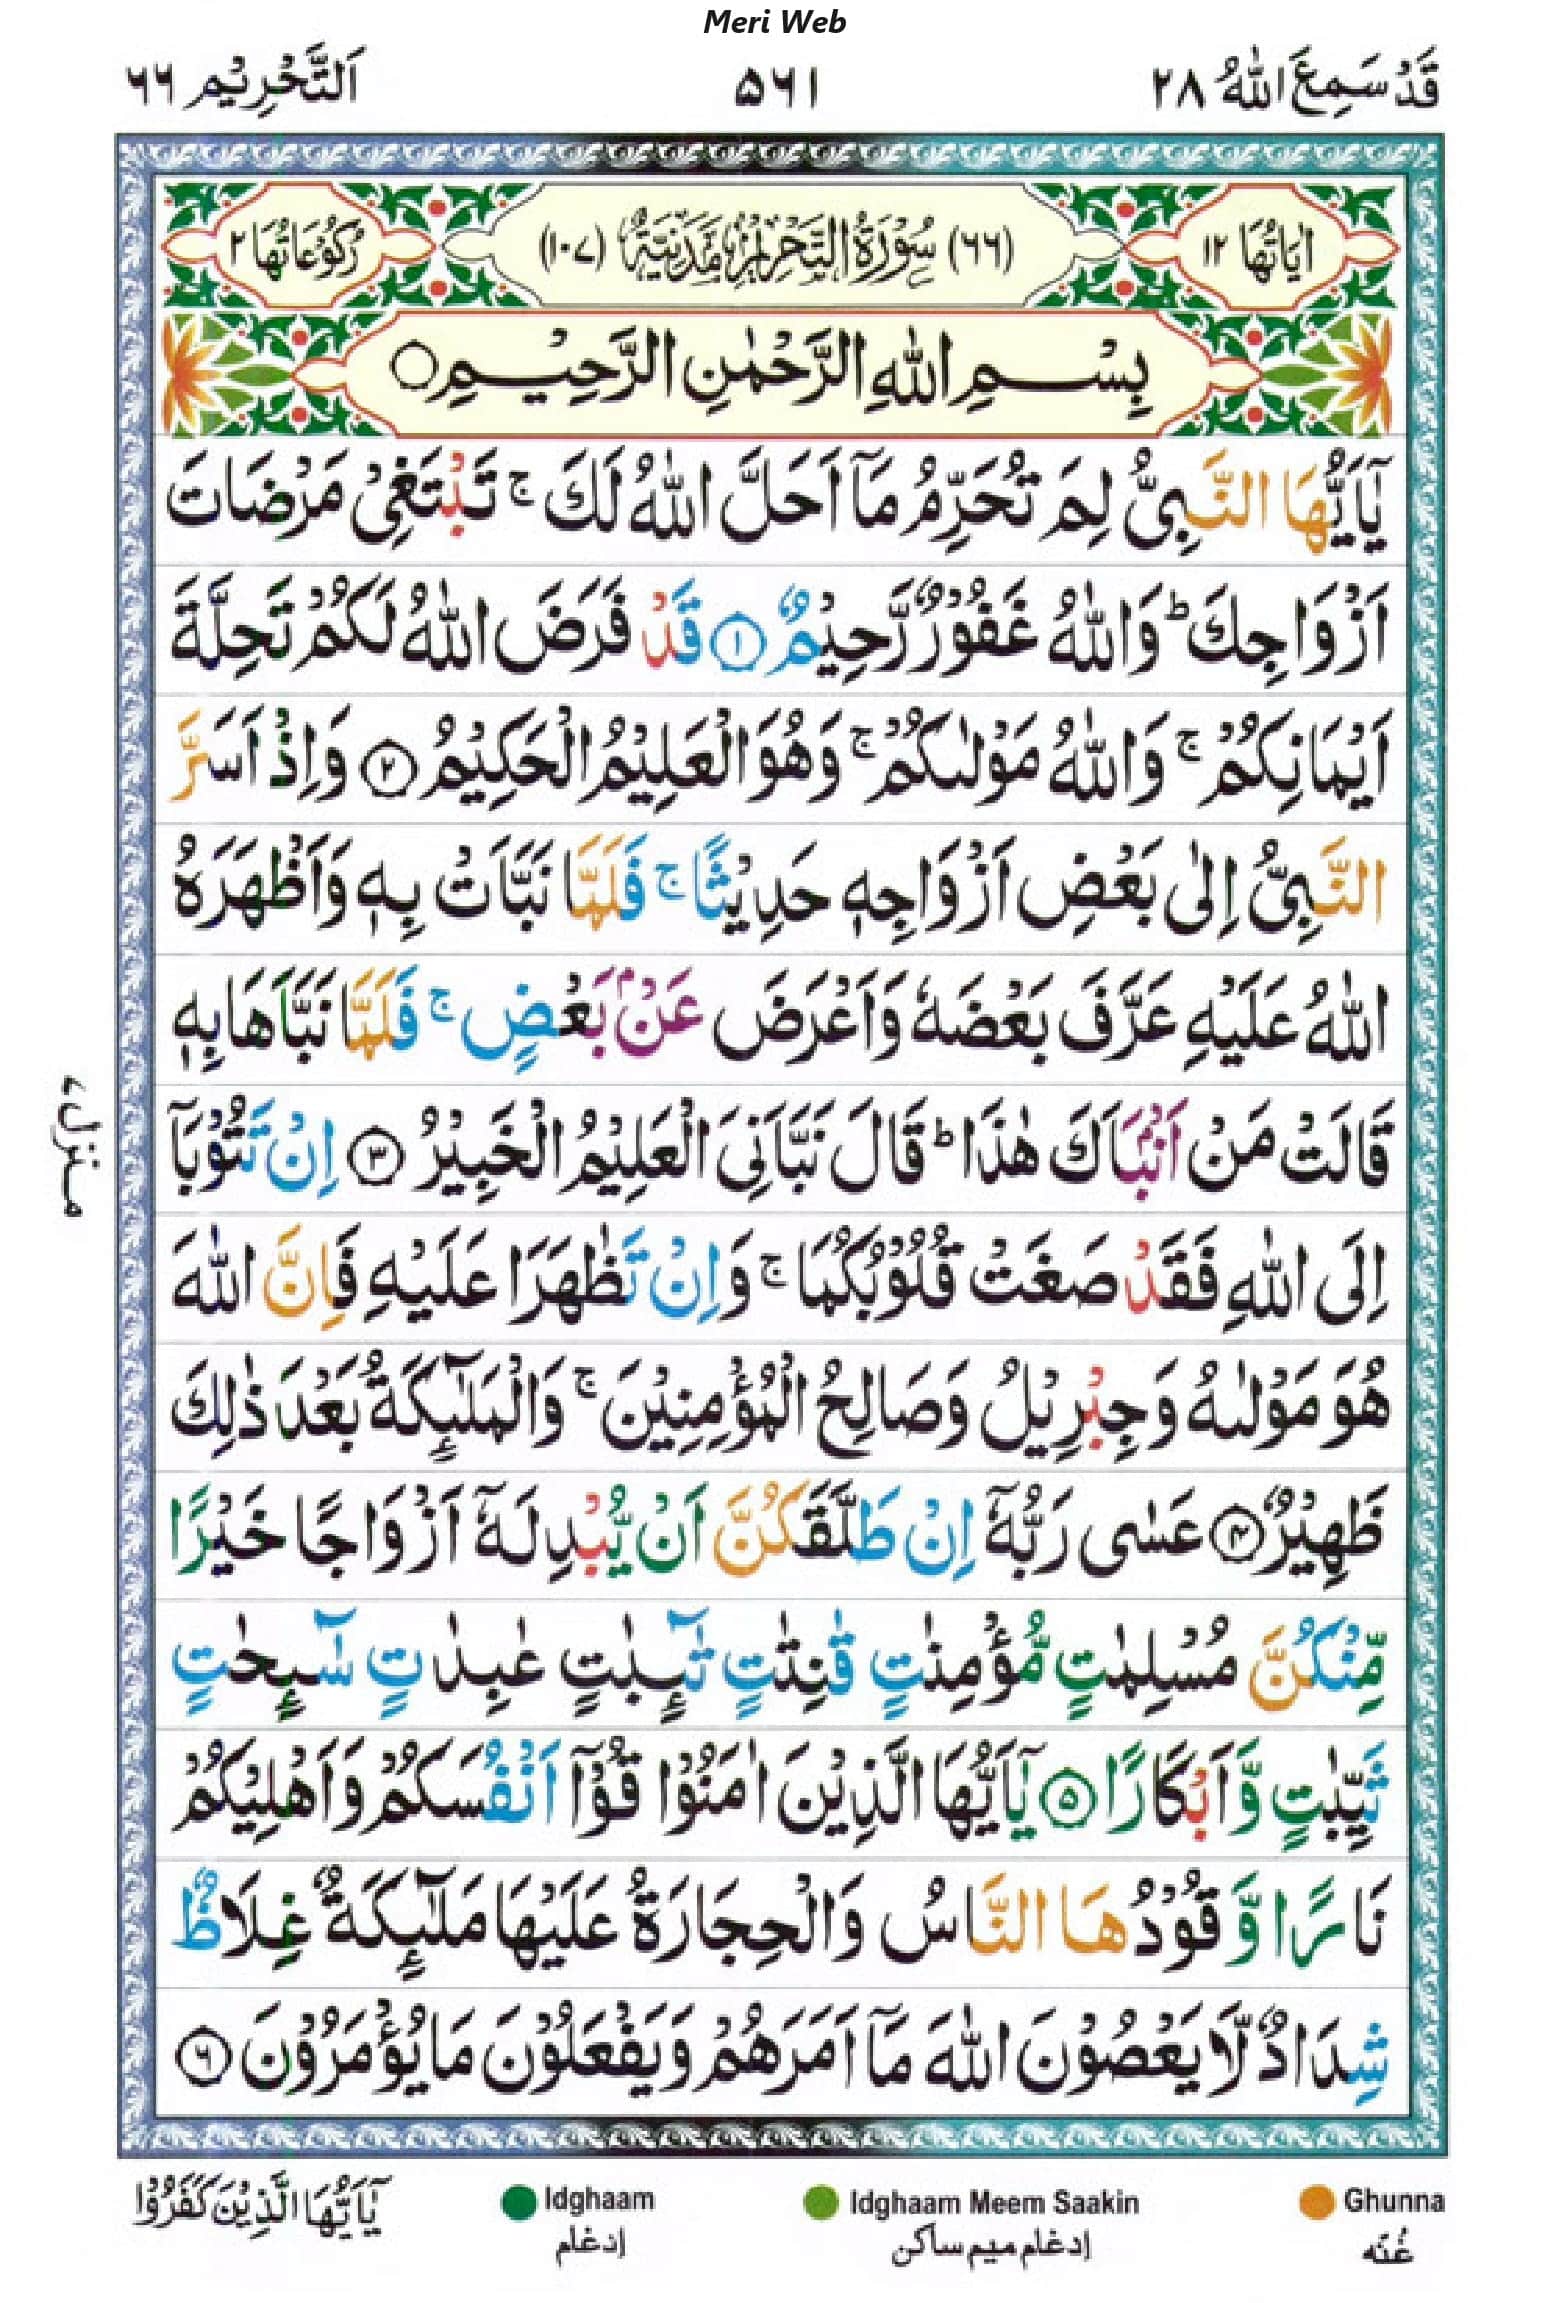 Meri Web
قَدْ سَمِعَ اللّٰهُ ٢٨
۵٦١
اَلتَّحْرِيْم ٦٦
اٰيَاتُهَا ١٢
(٦٦) سُوْرَةُ التَّحْرِيْمِ مَدَنِيَّةٌ (١٠٧)
رُكُوْعَاتُهَا ٢
بِسْمِ اللّٰهِ الرَّحْمٰنِ الرَّحِيْمِ ○
يٰۤاَيُّهَا النَّبِىُّ لِمَ تُحَرِّمُ مَاۤ اَحَلَّ اللّٰهُ لَكَ ۚ تَبْتَغِىْ مَرْضَاتَ
اَزْوَاجِكَ ؕ وَاللّٰهُ غَفُوْرٌ رَّحِيْمٌ ١ قَدْ فَرَضَ اللّٰهُ لَكُمْ تَحِلَّةَ
اَيْمَانِكُمْ ۚ وَاللّٰهُ مَوْلٰىكُمْ ۚ وَهُوَ الْعَلِيْمُ الْحَكِيْمُ ٢ وَاِذْ اَسَرَّ
النَّبِىُّ اِلٰى بَعْضِ اَزْوَاجِهٖ حَدِيْثًا ۚ فَلَمَّا نَبَّاَتْ بِهٖ وَاَظْهَرَهُ
اللّٰهُ عَلَيْهِ عَرَّفَ بَعْضَهٗ وَاَعْرَضَ عَنْۢ بَعْضٍ ۚ فَلَمَّا نَبَّاَهَا بِهٖ
قَالَتْ مَنْ اَنْۢبَاَكَ هٰذَا ؕ قَالَ نَبَّاَنِىَ الْعَلِيْمُ الْخَبِيْرُ ٣ اِنْ تَتُوْبَاۤ
اِلَى اللّٰهِ فَقَدْ صَغَتْ قُلُوْبُكُمَا ۚ وَاِنْ تَظٰهَرَا عَلَيْهِ فَاِنَّ اللّٰهَ
هُوَ مَوْلٰىهُ وَجِبْرِيْلُ وَصَالِحُ الْمُؤْمِنِيْنَ ۚ وَالْمَلٰٓئِكَةُ بَعْدَ ذٰلِكَ
ظَهِيْرٌ ۴ عَسٰى رَبُّهٗۤ اِنْ طَلَّقَكُنَّ اَنْ يُّبْدِلَهٗۤ اَزْوَاجًا خَيْرًا
مِّنْكُنَّ مُسْلِمٰتٍ مُّؤْمِنٰتٍ قٰنِتٰتٍ تٰٓئِبٰتٍ عٰبِدٰتٍ سٰٓئِحٰتٍ
ثَيِّبٰتٍ وَّاَبْكَارًا ۵ يٰۤاَيُّهَا الَّذِيْنَ اٰمَنُوْا قُوْۤا اَنْفُسَكُمْ وَاَهْلِيْكُمْ
نَارًا وَّقُوْدُهَا النَّاسُ وَالْحِجَارَةُ عَلَيْهَا مَلٰٓئِكَةٌ غِلَاظٌ
شِدَادٌ لَّا يَعْصُوْنَ اللّٰهَ مَاۤ اَمَرَهُمْ وَيَفْعَلُوْنَ مَا يُؤْمَرُوْنَ ٦
منزل ٧
يٰۤاَيُّهَا الَّذِيْنَ كَفَرُوْا
Idghaam
إدغام
Idghaam Meem Saakin
إدغام ميم ساكن
Ghunna
غُنّه